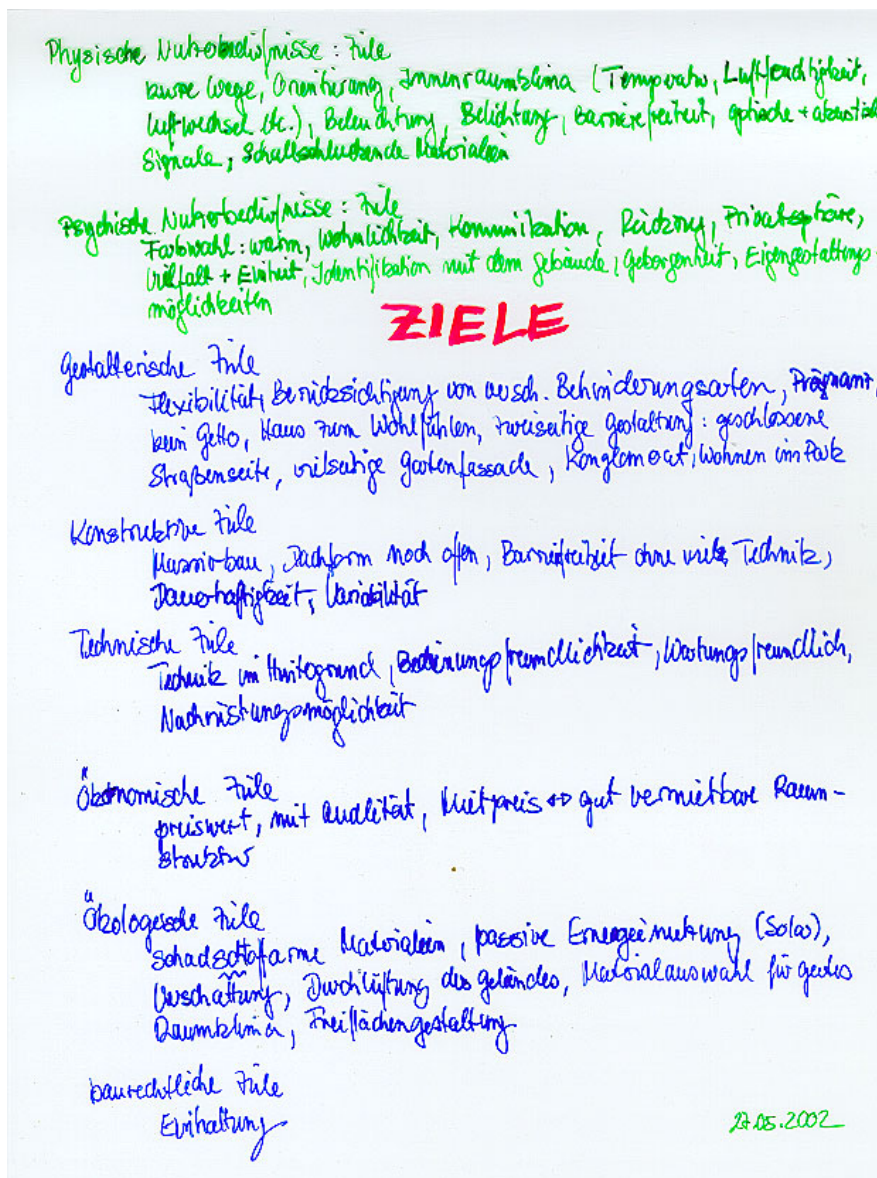 Physische Nutzerbedürfnisse : Ziele
kurze Wege, Orientierung, Innenraumklima (Temperatur, Luftfeuchtigkeit,
Luftwechsel etc.), Beleuchtung, Belichtung, Barrierefreiheit, optische + akustische
Signale, Schallschluckende Materialien
Psychische Nutzerbedürfnisse : Ziele
Farbwahl : warm, Wohnlichkeit, Kommunikation, Rückzug, Privatsphäre,
Vielfalt + Einheit, Identifikation mit dem Gebäude, Geborgenheit, Eigengestaltungs-
möglichkeiten
ZIELE
Gestalterische Ziele
Flexibilität, Berücksichtigung von versch. Behinderungsarten, Prägnanz,
kein Getto, Haus zum Wohlfühlen, zweiseitige Gestaltung : geschlossene
Straßenseite, vielseitige Gartenfassade, Konglomerat, Wohnen im Park
Konstruktive Ziele
Massivbau, Dachform noch offen, Barrierefreiheit ohne viele Technik,
Dauerhaftigkeit, Variabilität
Technische Ziele
Technik im Hintergrund, Bedienungsfreundlichkeit, Wartungsfreundlich,
Nachrüstungsmöglichkeit
Ökonomische Ziele
preiswert, mit Qualität, Mietpreis ↔ gut vermietbare Raum-
struktur
Ökologische Ziele
Schadstoffarme Materialien, passive Energienutzung (Solar),
Verschattung, Durchlüftung des Geländes, Materialauswahl für gutes
Raumklima, Freiflächengestaltung
baurechtliche Ziele
Einhaltung
27.05.2002